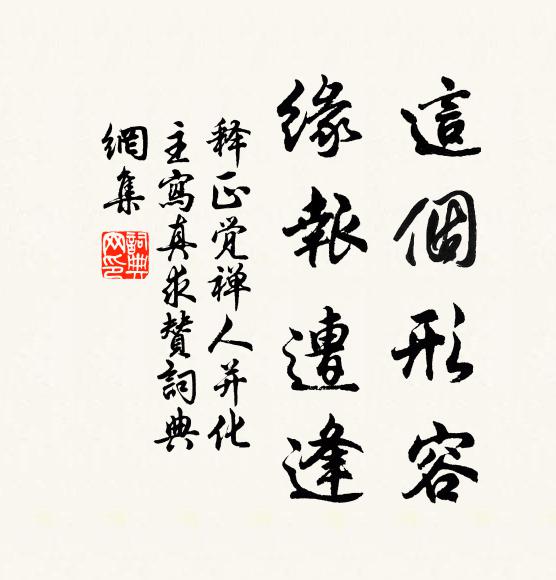 這個形容
緣報遭逢
释正觉禅人并化
主寫真求贊詞典
網集
詞典
网印